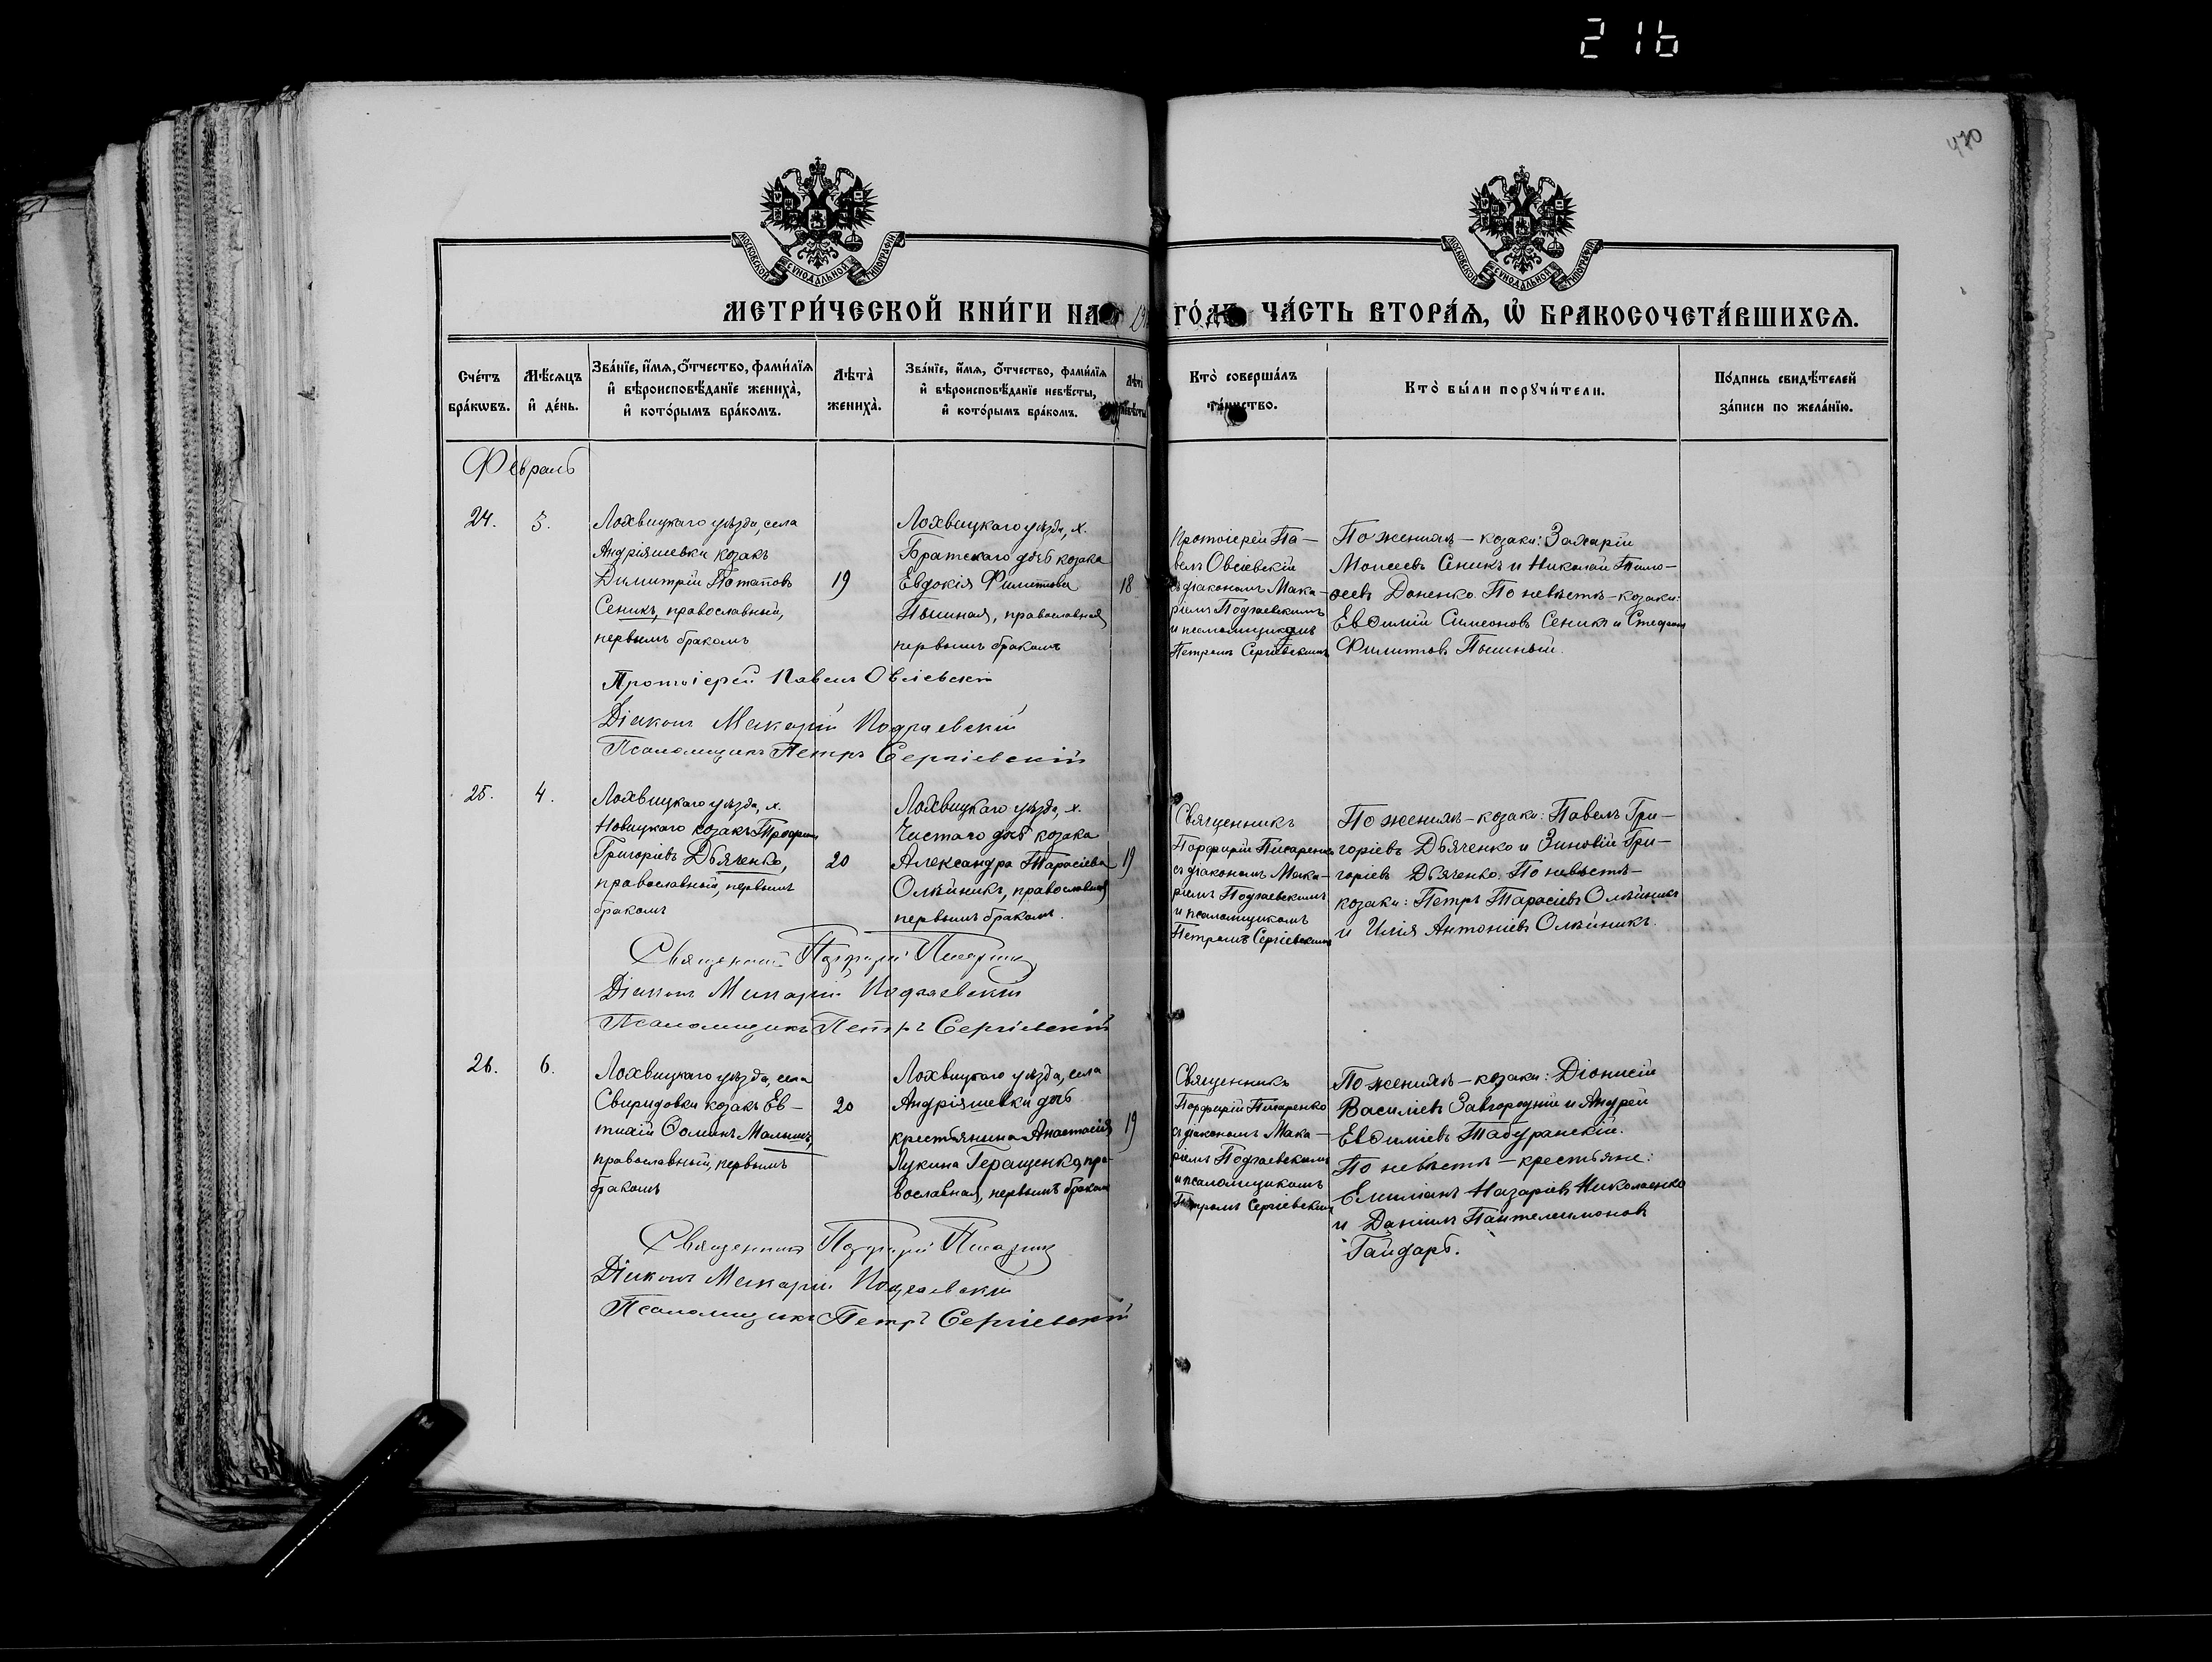 216
470
МОСКОВСКОЙ СѴНОДАЛЬНОЙ ТИПОГРАФІИ
МОСКОВСКОЙ СѴНОДАЛЬНОЙ ТИПОГРАФІИ
МЕТРИ́ЧЕСКОЙ КНИ́ГИ НА ГО́ДЪ ЧА́СТЬ ВТОРА́Ѧ, Ѽ БРАКОСОЧЕТА́ВШИХСѦ.
Сче́тъ бра́кѡвъ.
Мѣ́сѧцъ и҆ де́нь.
Зва́нїе, и҆́мѧ, ѻ҆́тчество, фами́лїѧ и҆ вѣроисповѣ́данїе жениха̀, и҆ кото́рымъ бра́комъ.
Лѣта̀ жениха̀.
Зва́нїе, и҆́мѧ, ѻ҆́тчество, фами́лїѧ и҆ вѣроисповѣ́данїе невѣ́сты, и҆ кото́рымъ бра́комъ.
Лѣта̀ невѣ́сты
Кто̀ соверша́лъ та́инство.
Кто̀ бы́ли порꙋчи́тели.
По́дпись свидѣ́телей за́писи по жела́нїю.
Февраль
24.
3.
Лохвицкаго уѣзда, села
Андріяшевки козакъ
Димитрій Потаповъ
Сеникъ, православный,
первымъ бракомъ
19
Лохвицкаго уѣзда, х.
Братскаго дочь козака
Евдокія Филиппова
Пышная, православная
первымъ бракомъ
18
Протоіерей Па-
велъ Овсіевскій
съ діакономъ Мака-
ріемъ Подгаевскимъ
и псаломщикомъ
Петромъ Сергіевскимъ
По женихѣ - козаки: Захарій
Моисеевъ Сеникъ и Николай Тимо-
ѳеевъ Доненко. По невѣстѣ - козаки:
Евѳимій Симеоновъ Сеникъ и Стефанъ
Филиповъ Пышный.
Протоіерей Павелъ Овсіевскій
Діаконъ Макарій Подгаевскій
Псаломщикъ Петръ Сергіевскій
25.
4.
Лохвицкаго уѣзда, х.
Новицкаго козакъ Трофим
Григоріевъ Дьяченко,
православный, первымъ
бракомъ
20
Лохвицкаго уѣзда, х.
Чистаго дочь козака
Александра Тарасіева
Олѣйникъ, православная
первымъ бракомъ.
19
Священникъ
Порфирій Писаренко
съ діакономъ Мака-
ріемъ Подгаевскимъ
и псаломщикомъ
Петромъ Сергіевскимъ
По женихѣ - козаки: Павелъ Гри-
горіевъ Дьяченко и Зиновій Гри-
горіевъ Дьяченко. По невѣстѣ -
козаки: Петръ Тарасіевъ Олѣйникъ
и Илія Антоніевъ Олѣйникъ.
Священникъ Порфирій Писаренко
Діаконъ Макарій Подгаевскій
Псаломщикъ Петръ Сергіевскій
26.
6.
Лохвицкаго уѣзда, села
Свиридовки козакъ Ев-
тихій Ѳоминъ Малышъ,
православный, первымъ
бракомъ
20
Лохвицкаго уѣзда, села
Андріяшевки дочь
крестьянина Анастасія
Лукина Геращенко, пра-
вославная, первымъ бракомъ
19
Священникъ
Порфирій Писаренко
съ діакономъ Мака-
ріемъ Подгаевскимъ
и псаломщикомъ
Петромъ Сергіевскимъ
По женихѣ - козаки: Діонисій
Василіевъ Завгородній и Андрей
Евѳиміевъ Табуранскій.
По невѣстѣ - крестьяне:
Емиліанъ Назаріевъ Николаенко
и Даніилъ Пантелеимоновъ
Гайдарь.
Священникъ Порфирій Писаренко
Діаконъ Макарій Подгаевскій
Псаломщикъ Петръ Сергіевскій